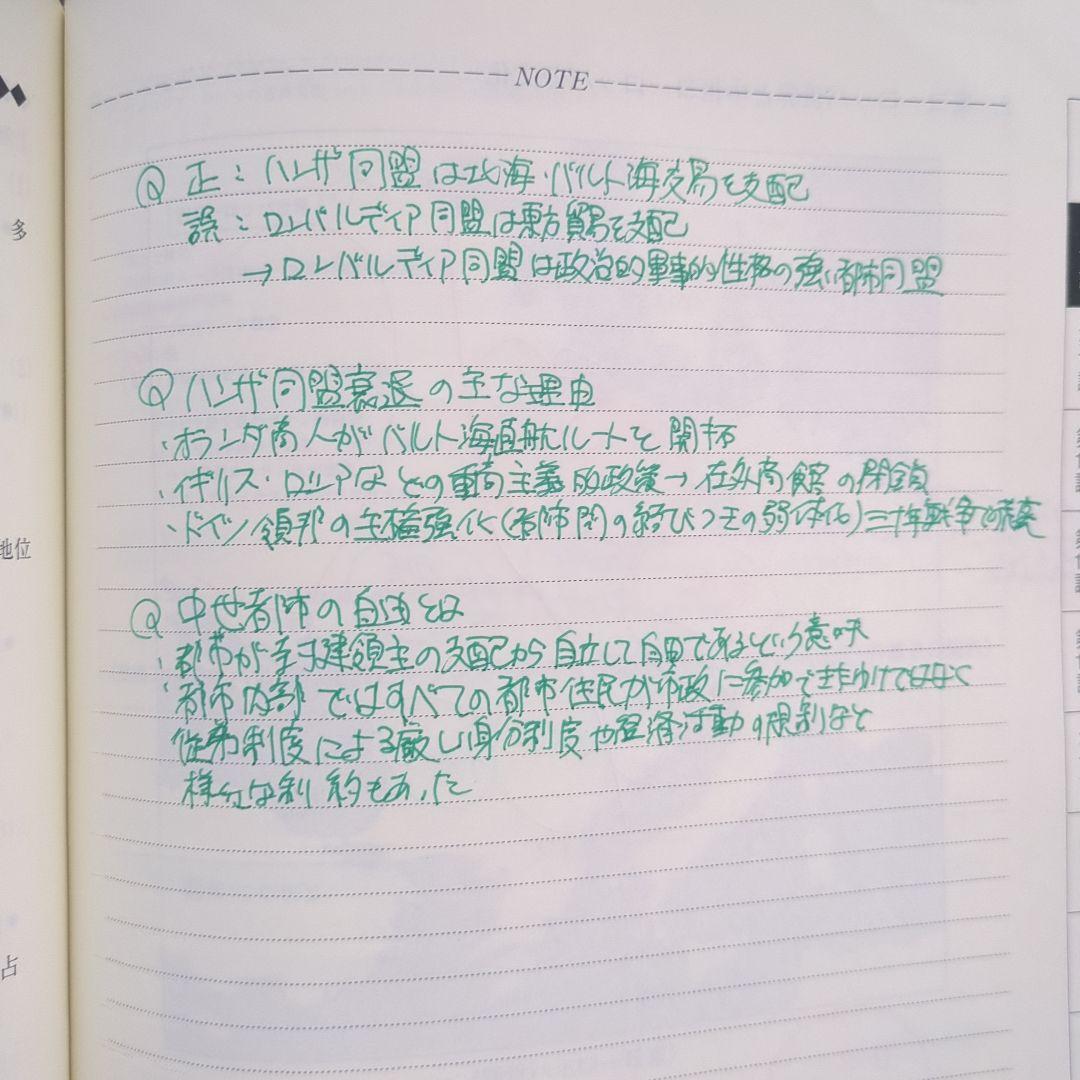 NOTE
Q 正：ハンザ同盟は北海・バルト海交易を支配
誤：ロンバルディア同盟は東方貿易を支配
→ロンバルディア同盟は政治的軍事的性格の強い都市同盟
Q ハンザ同盟衰退の主な理由
・オランダ商人がバルト海直航ルートを開拓
・イギリス・ロシアなどの重商主義的政策→在外商館の閉鎖
・ドイツ領邦の主権強化(都市間の結びつきの弱体化)三十年戦争の荒廃
Q 中世都市の自由とは
・都市が封建領主の支配から自立して自由であるという意味
・都市内部ではすべての都市住民が市政に参加できたわけではなく
徒弟制度による厳しい身分制度や経済活動の規制など
様々な制約もあった
多
地位
占